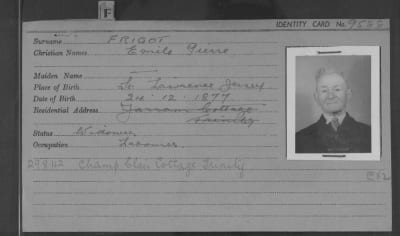 F
IDENTITY CARD No. 9533
Surname FRIGOT
Christian Names Emile Pierre
Maiden Name —
Place of Birth St. Lawrence Jersey
Date of Birth 24. 12. 1877
Residential Address Cottage
Trinity
Status Widower
Occupation Labourer
29842 Champ Clos Cottage Trinity